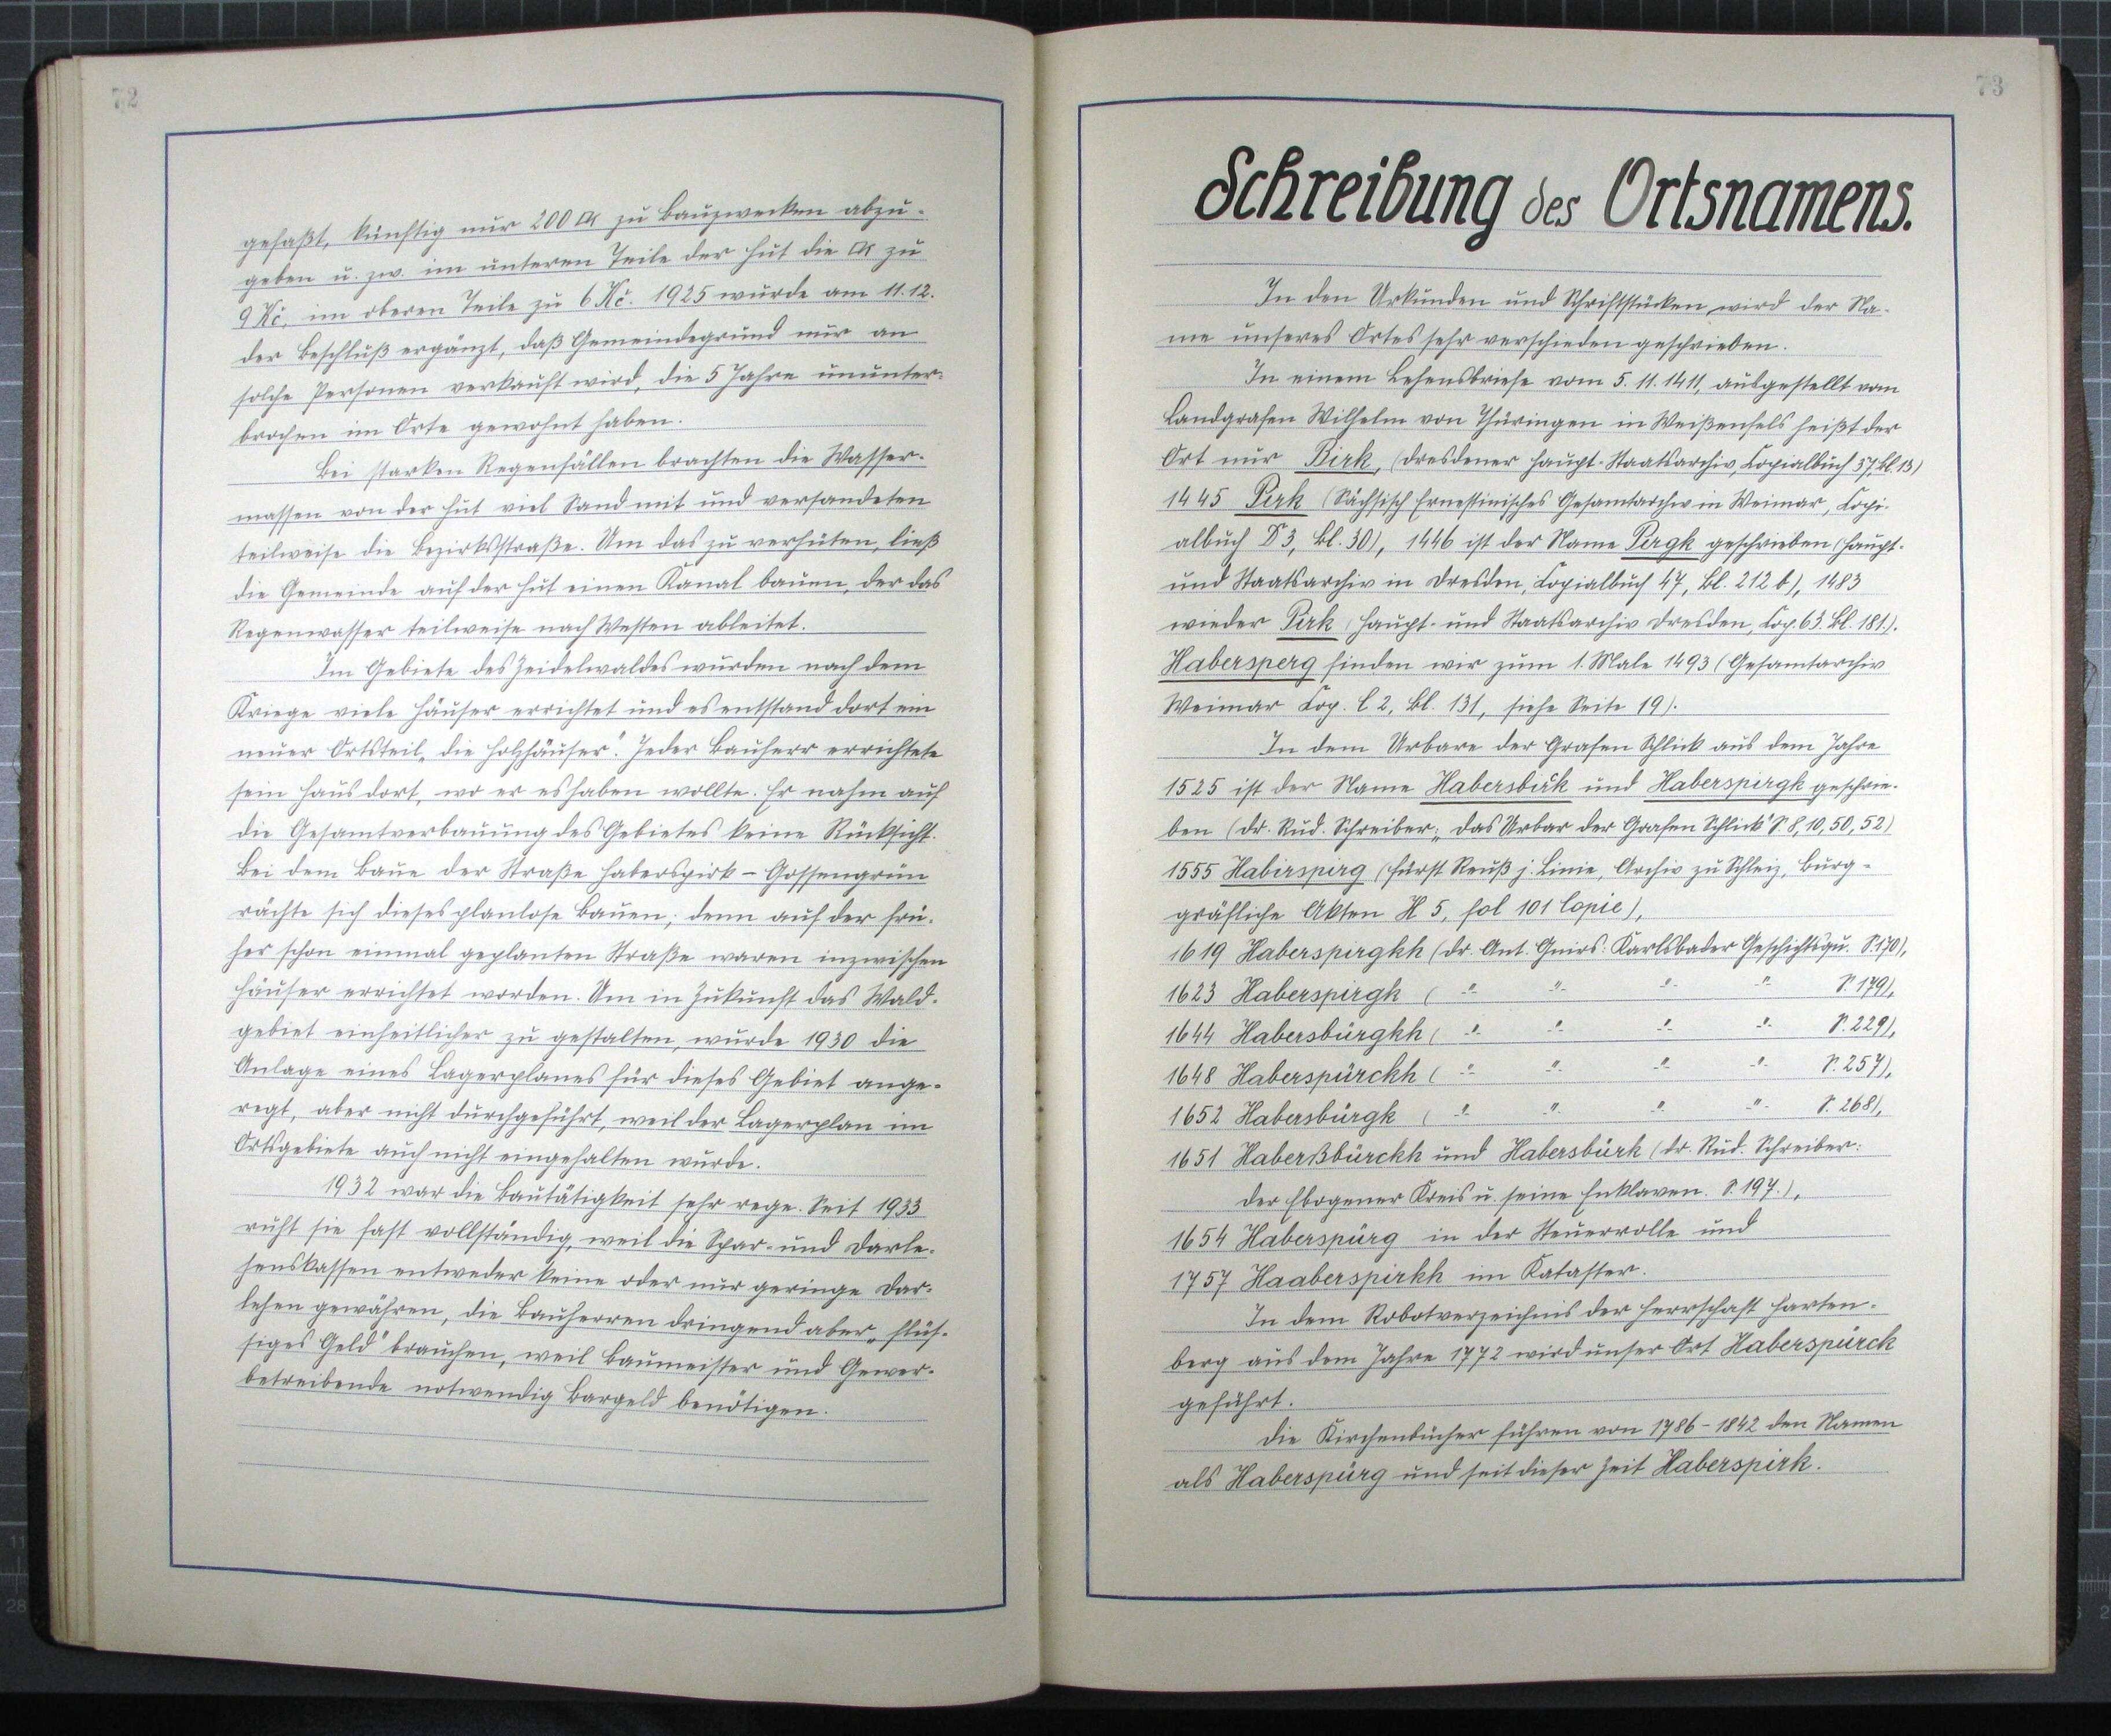 72
gefaßt, künftig nur 200 □⁰ zu Bauzwecken abzu-
geben u. zw. im unteren Teile der Hut die □⁰ zu
9 Kč, im oberen Teile zu 6 Kč. 1925 wurde am 11.12.
der Beschluß ergänzt, daß Gemeindegrund nur an
solche Personen verkauft wird, die 5 Jahre ununter-
brochen im Orte gewohnt haben.
Bei starken Regenfällen brachten die Wasser-
massen von der Hut viel Sand mit und versandeten
teilweise die Bezirksstraße. Um das zu verhüten, ließ
die Gemeinde auf der Hut einen Kanal bauen, der das
Regenwasser teilweise nach Westen ableitet.
Im Gebiete des Zeidelwaldes wurden nach dem
Kriege viele Häuser errichtet und es entstand dort ein
neuer Ortsteil „die Holzhäuser". Jeder Bauherr errichtete
sein Haus dort, wo er es haben wollte. Er nahm auf
die Gesamtverbauung des Gebietes keine Rücksicht.
Bei dem Baue der Straße Haberspirk - Gossengrün
rächte sich dieses planlose Bauen; denn auf der frü-
her schon einmal geplanten Straße waren inzwischen
Häuser errichtet worden. Um in Zukunft das Wald-
gebiet einheitlicher zu gestalten, wurde 1930 die
Anlage eines Lagerplanes für dieses Gebiet ange-
regt, aber nicht durchgeführt, weil der Lagerplan im
Ortsgebiete auch nicht eingehalten wurde.
1932 war die Bautätigkeit sehr rege. Seit 1933
ruht sie fast vollständig, weil die Spar- und Darle-
henskassen entweder keine oder nur geringe Dar-
lehen gewähren, die Bauherren dringend aber „flüs-
siges Geld" brauchen, weil Baumeister und Gewer-
betreibende notwendig Bargeld benötigen.
73
Schreibung des Ortsnamens.
In den Urkunden und Schriftstücken wird der Na-
me unseres Ortes sehr verschieden geschrieben.
In einem Lehensbriefe vom 5. 11. 1411, ausgestellt vom
Landgrafen Wilhelm von Thüringen in Weißenfels heißt der
Ort nur Birk, (Dresdener Haupt-Staatsarchiv, Kopialbuch 37 Bl. 13)
1445 Pirk (Sächsisch Ernestinisches Gesamtarchiv in Weimar, Kopi-
albuch D 3, Bl. 30), 1446 ist der Name Pergk geschrieben (Haupt-
und Staatsarchiv in Dresden, Kopialbuch 47, Bl. 212 b), 1483
wieder Pirk (Haupt- und Staatsarchiv Dresden, Kop. 63. Bl. 181.).
Habersperg finden wir zum 1. Male 1493 (Gesamtarchiv
Weimar Kop. C 2, Bl. 131, siehe Seite 19).
In dem Urbare der Grafen Schlick aus dem Jahre
1525 ist der Name Habersbirk und Haberspirgk geschrie-
ben (Dr. Rud. Schreiber: „Das Urbar der Grafen Schlick" S. 8, 10, 50, 52)
1555 Habirspirg (Fürst Reuß j. Linie, Archiv zu Schleiz, Burg-
gräfliche Akten H 5, fol 101 Copie),
1619 Haberspirgkh (Dr. Ant. Gnirs: Karlsbader Geschichtsqu. S. 170),
1623 Haberspirgk ( -"- -"- -"- -"- S. 179),
1644 Habersbürgkh ( -"- -"- -"- -"- S. 229),
1648 Haberspürckh ( -"- -"- -"- -"- S. 257),
1652 Habersbürgk ( -"- -"- -"- -"- S. 268),
1651 Haberßbürckh und Habersbürk (Dr. Rud. Schreiber:
Der Elbogener Kreis u. seine Enklaven. S. 197.),
1654 Haberspürg in der Steuerrolle und
1757 Haaberspirkh im Kataster.
In dem Robotverzeichnis der Herrschaft Harten-
berg aus dem Jahre 1772 wird unser Ort Haberspürck
geführt.
Die Kirchenbücher führen von 1786 - 1842 den Namen
als Haberspürg und seit dieser Zeit Haberspirk.